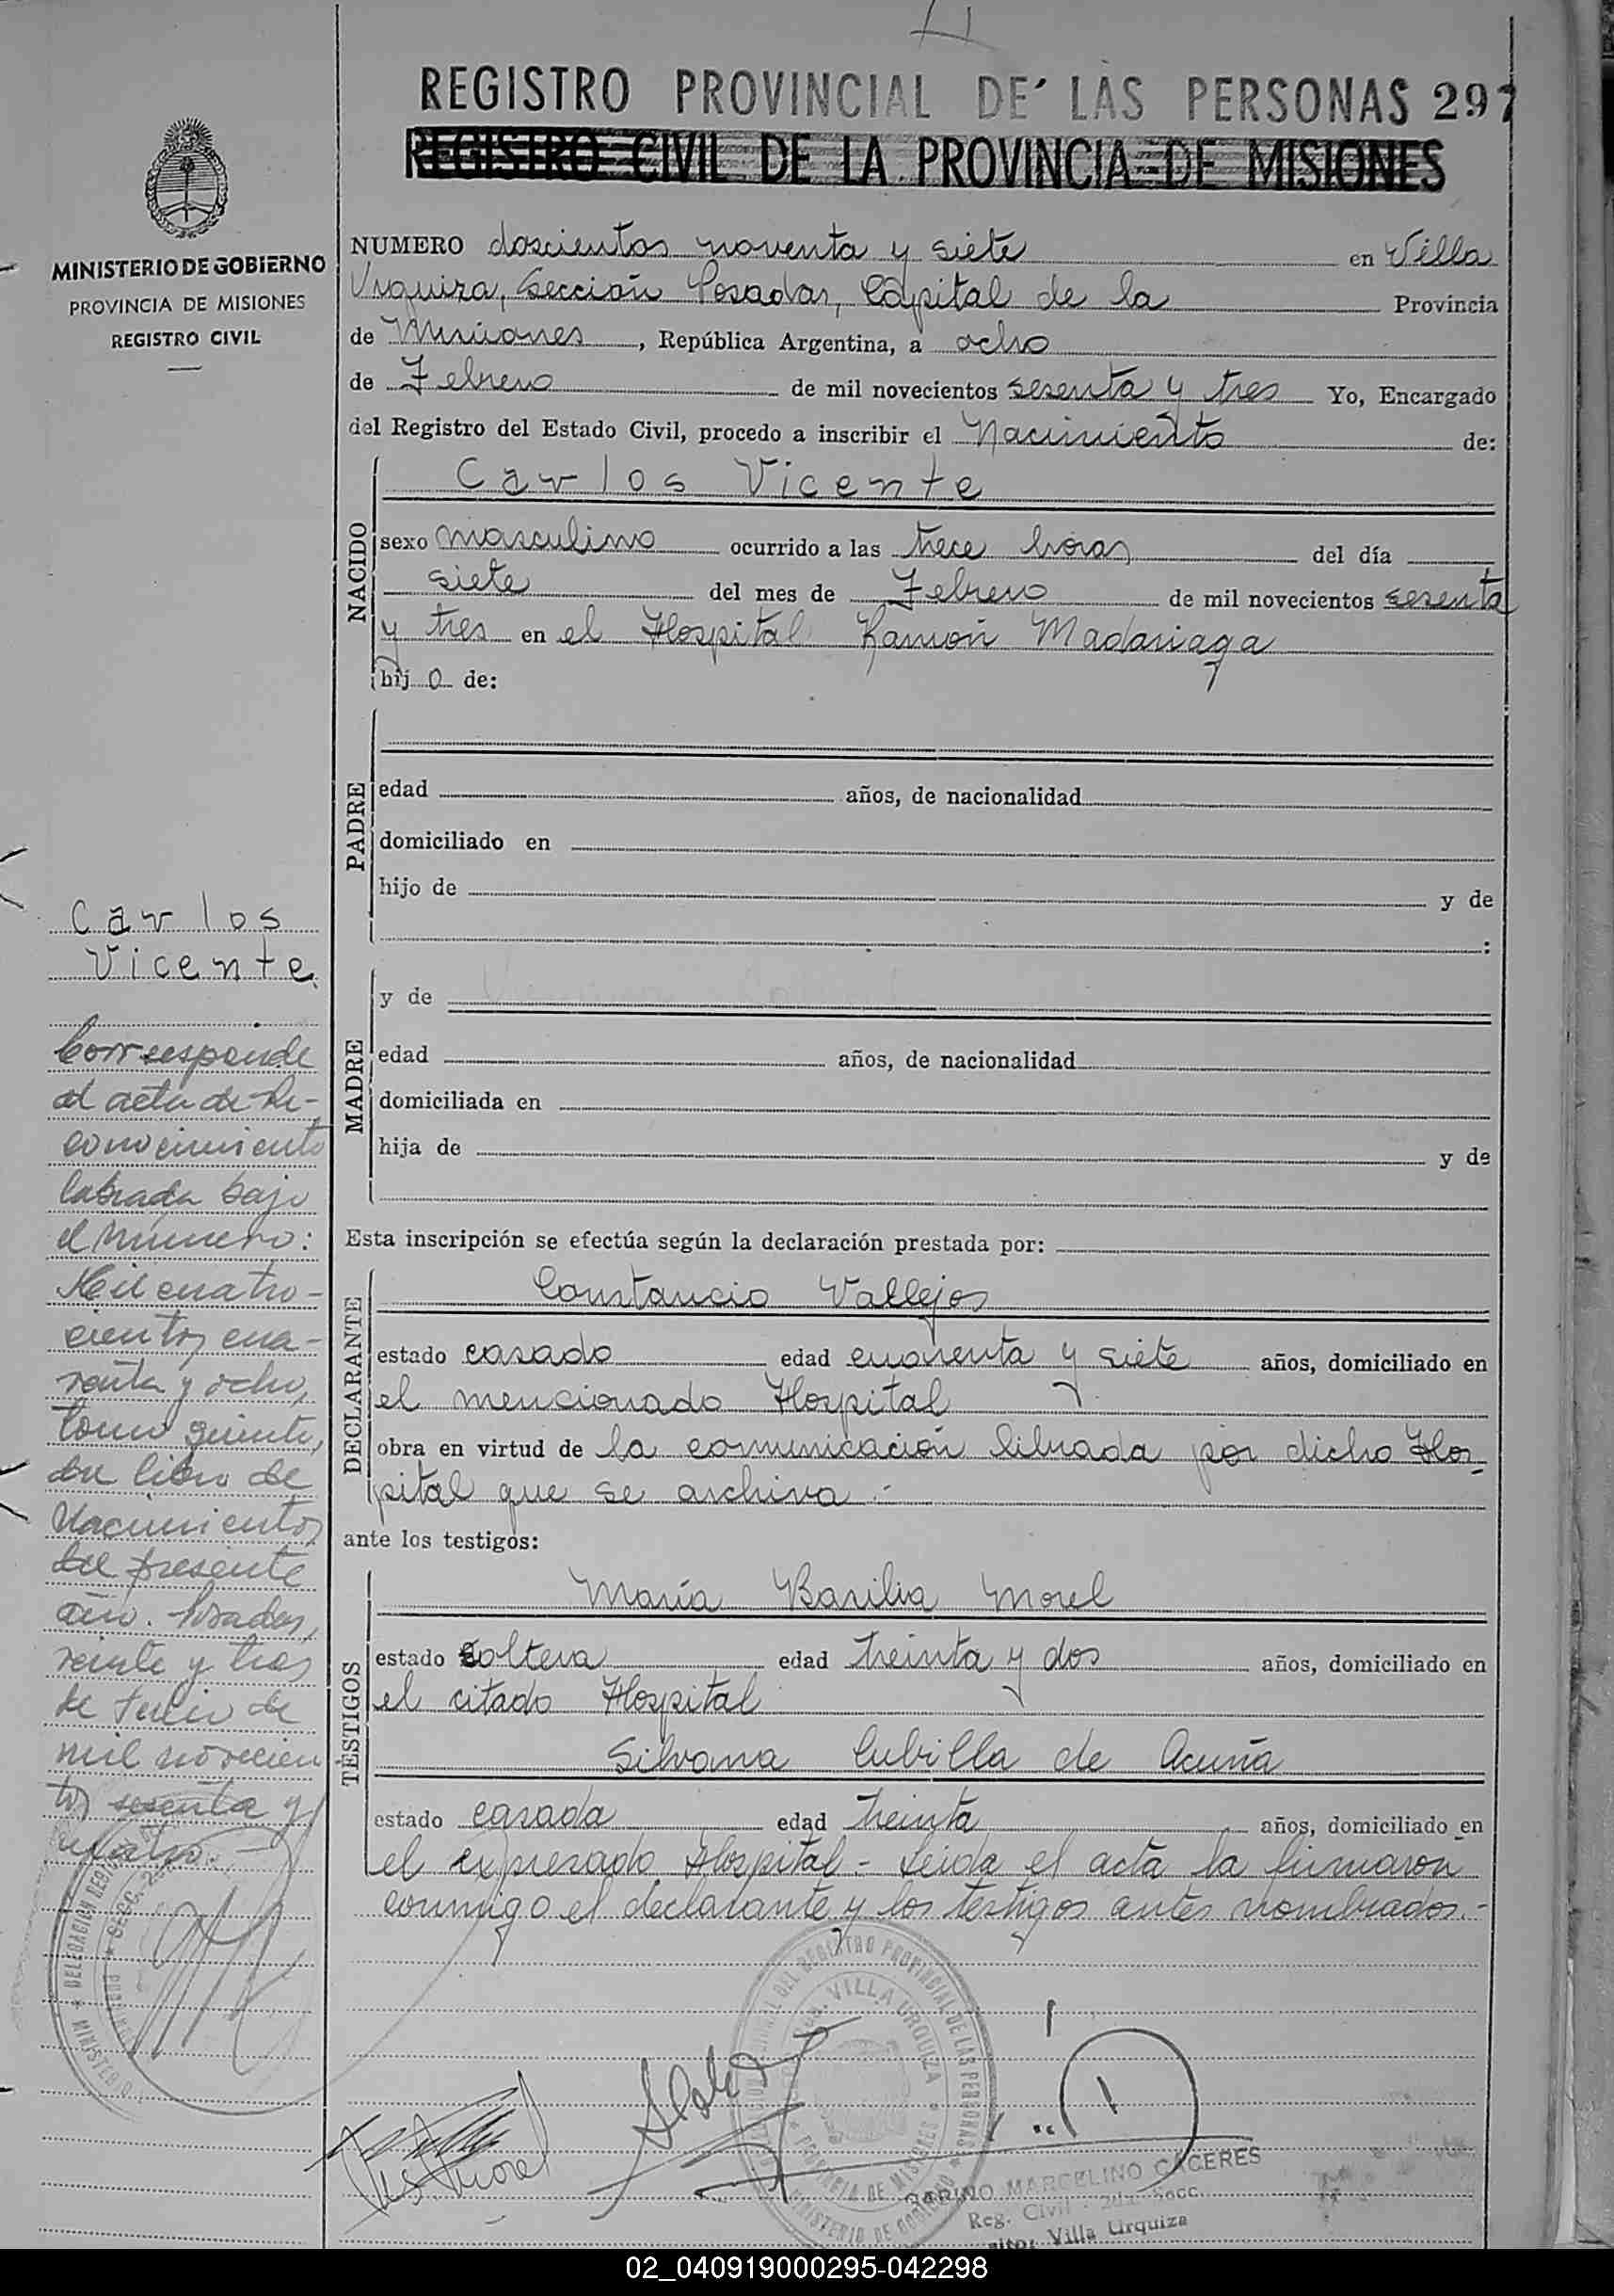 REGISTRO PROVINCIAL DE LAS PERSONAS 297
REGISTRO CIVIL DE LA PROVINCIA DE MISIONES
MINISTERIO DE GOBIERNO
PROVINCIA DE MISIONES
REGISTRO CIVIL
NUMERO doscientos noventa y siete en Villa
Urquiza, Sección Posadas, Capital de la Provincia
de Misiones, República Argentina, a ocho
de Febrero de mil novecientos sesenta y tres Yo, Encargado
del Registro del Estado Civil, procedo a inscribir el Nacimiento de:
NACIDO
Carlos Vicente
sexo masculino ocurrido a las trece horas del día
siete del mes de Febrero de mil novecientos sesenta
y tres en el Hospital Ramón Madariaga
hijo de:
PADRE
edad años, de nacionalidad
domiciliado en
hijo de y de
:
MADRE
y de
edad años, de nacionalidad
domiciliada en
hija de y de
Esta inscripción se efectúa según la declaración prestada por:
DECLARANTE
Constancio Vallejos
estado casado edad cuarenta y siete años, domiciliado en
el mencionado Hospital
obra en virtud de la comunicación librada por dicho Hos-
pital que se archiva.-
ante los testigos:
TESTIGOS
María Basilia Morel
estado soltera edad treinta y dos años, domiciliado en
el citado Hospital
Silvana Cubilla de Acuña
estado casada edad treinta años, domiciliado en
el expresado Hospital - Leida el acta la firmaron
conmigo el declarante y los testigos antes nombrados.-
Carlos
Vicente
Corresponde
al acta de Re-
conocimiento
labrada bajo
el número:
Mil cuatro-
cientos cua-
renta y ocho,
tomo quinto,
del libro de
Nacimientos
del presente
año. Posadas,
veinte y tres
de Junio de
mil novecien
tos sesenta y
cuatro.-
DEL REGISTRO PROVINCIAL DE LAS PERSONAS
VILLA URQUIZA
PROVINCIA DE MISIONES
MINISTERIO DE GOBIERNO
MARCELINO CACERES
Reg. Civil Secc.
Villa Urquiza
02_040919000295-042298